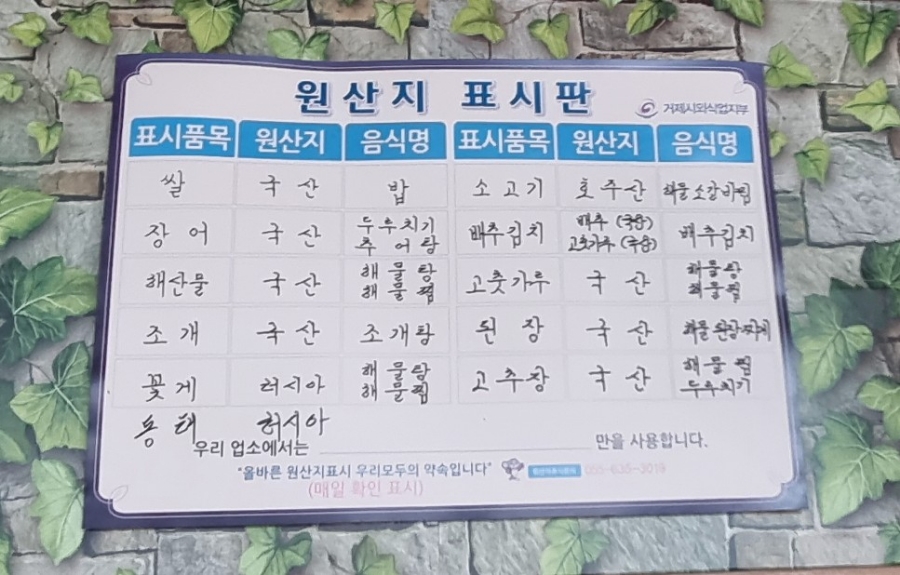 원산지 표시판
거제시외식업지부
표시품목 원산지 음식명 표시품목 원산지 음식명
쌀 국산 밥 소고기 호주산 해물소갈비찜
장어 국산 두루치기 추어탕 배추김치 배추 (국산) 고춧가루 (국산) 배추김치
해산물 국산 해물탕 해물찜 고춧가루 국산 해물탕 해물찜
조개 국산 조개탕 된장 국산 해물된장찌개
꽃게 러시아 해물탕 해물찜 고추장 국산 해물찜 두루치기
동태 러시아
우리 업소에서는 만을 사용합니다.
"올바른 원산지표시 우리모두의 약속입니다" 055-635-3019
(매일 확인 표시)